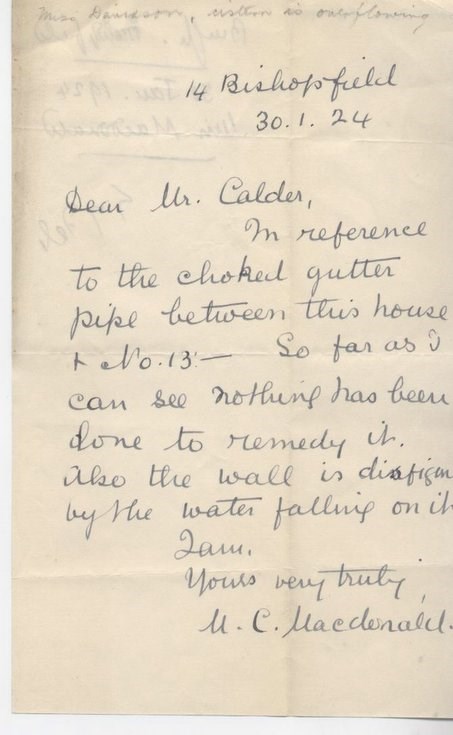 Miss Davidson, cistern is overflowing
14 Bishopsfield
30. 1. 24
Dear Mr. Calder,
In reference
to the choked gutter
pipe between this house
+ No. 13 — So far as I
can see nothing has been
done to remedy it.
Also the wall is disfigur
by the water falling on it
I am,
Yours very truly,
M. C. Macdonald.